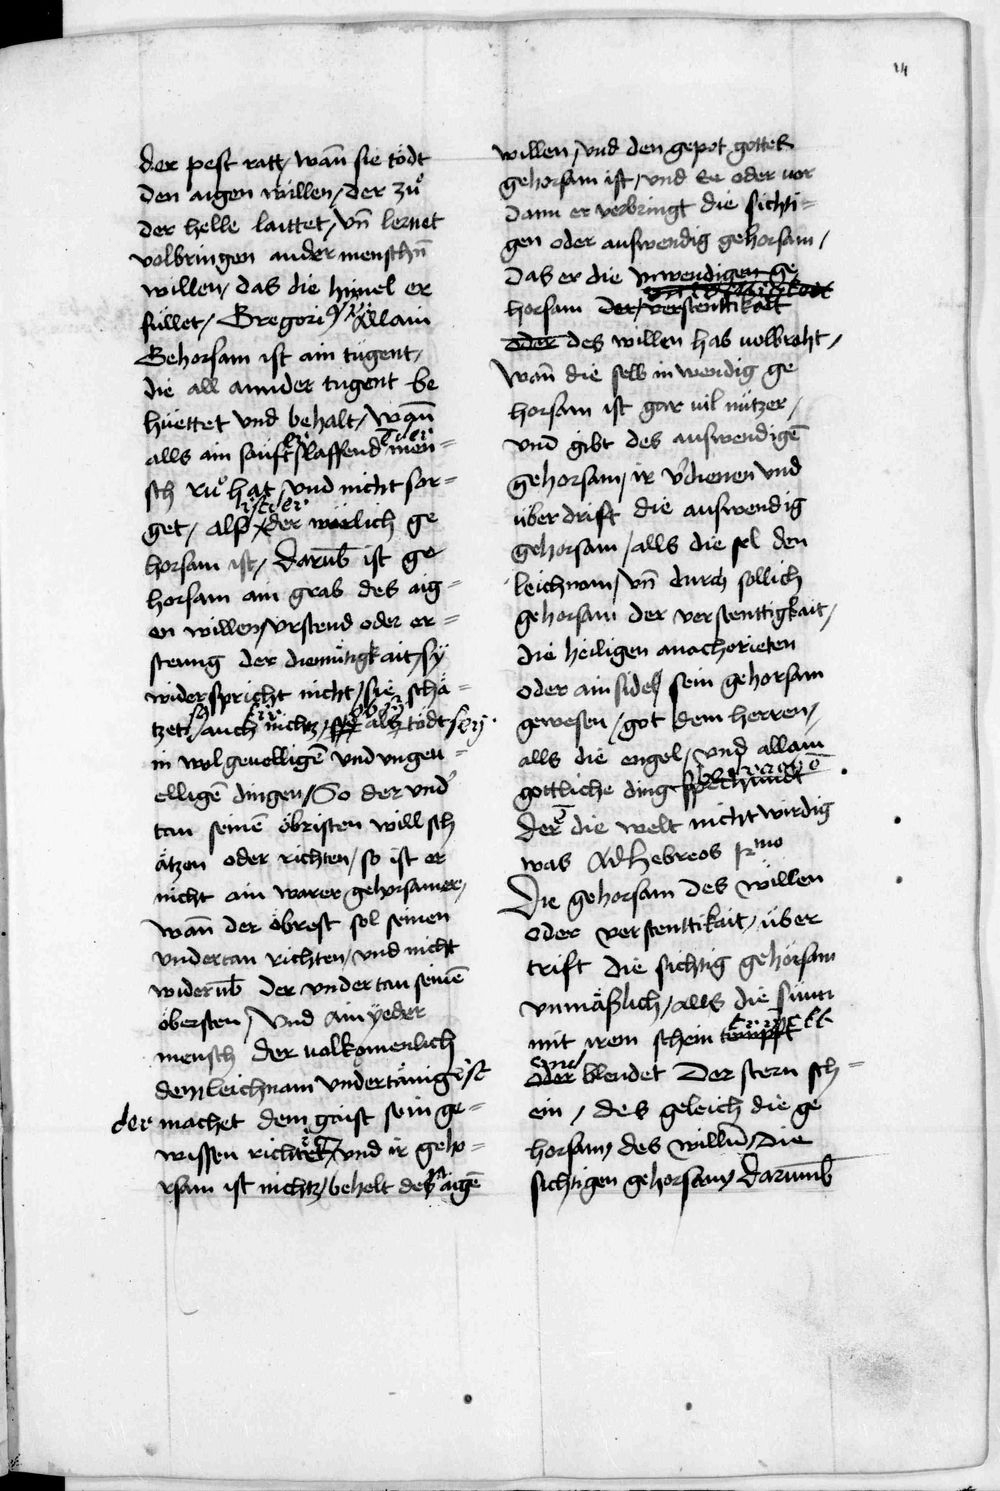 14
der pest ratt / wan̄ sie tödt
den aigen willen / der zuͦ
der helle laittet / vn̄ lernet
volbringen ander menschn̄
willen / das die himel er
füllet / Gregori9 Allain
Gehorsam ist ain tugent /
die all annder tugent be
hüettet vnd behalt / Wan̄
alls ain sanft slaffend men=
sch ruͦ hat / vnd nicht sor=
get / also der lich ge
horsam ist / Darūb ist ge
horsam ain grab des aig=
en willen / vrstend oder er=
steung der diemütigkait / sy
widerspricht nicht / sie schä=
tzet auch nichtz / als tödt sey
in wolgeuelligē vnd vngeu=
elligē dingen / So der vnd̓
tan seinē öbristen will sch
ätzen oder richten / so ist er
nicht ain warer gehorsamer /
Wan̄ der öbrest sol seinen
vndertan richten / vnd nicht
widerūb der vndertan seinē
öbersten / Vnd ain yeder
mensch der volkomenlich
dem leichnam vndertänig ist
der machet dem gaist sein ge=
wissen vnd ir geho=
rsam ist nichtz / behelt des aigē
willen / vnd den gepot gottes
gehorsam ist / vnd Ee oder vor
Dann er verbringt die sichti=
gen oder auswendig gehorsam /
Das er die inwendigen ge
horsam der verstenttikait
oder des willen hab uolbraht /
Wan̄ die selb in wendig ge
horsam ist gar uil nützer /
vnd gibt des auswendigē
gehorsam / ir v̓dienen vnd
übertrift die auswendig
gehorsam / alls die sel den
leichnam / vn̄ durch sollich
gehorsam der verstenttigkait /
die heiligen anachorieten
oder ainsidel sein gehorsam
gewesen / got dem herren /
alls die engel / vnd allain
gottliche ding
der die welt nicht wirdig
was Ad Hebreos
Die gehorsam des willen
oder verstenttikait / über
trift die sichtig gehorsam
vnmäßlich / alls die sunn
mit irem schein
oder blendet Der stern sch=
ein / des geleich die ge
horsam des willn̄ / Die
sichtigen gehorsam Darumb